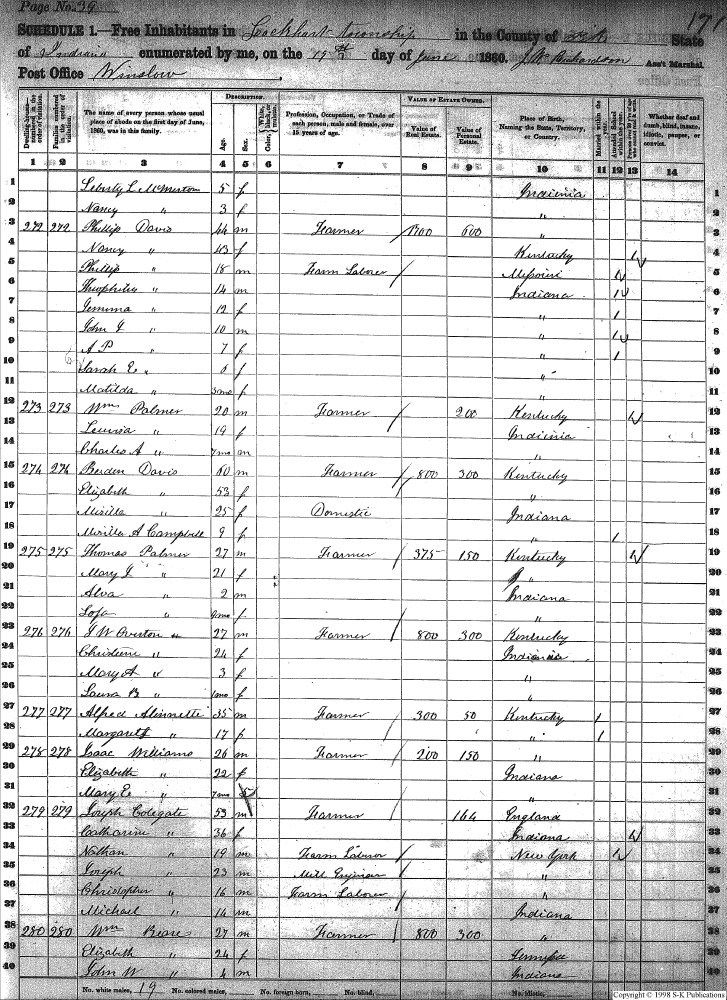 Page No. 39
177
SCHEDULE 1.—Free Inhabitants in Lockhart township in the County of Pike State
of Indiana enumerated by me, on the 19th day of June 1860. J W Richardson Ass't Marshal.
Post Office Winslow
Dwelling-houses numbered in the order of visitation.
Families numbered in the order of visitation.
The name of every person whose usual place of abode on the first day of June, 1860, was in this family.
DESCRIPTION.
Age.
Sex.
Color, {White, black, or mulatto.
Profession, Occupation, or Trade of each person, male and female, over 15 years of age.
VALUE OF ESTATE OWNED.
Value of Real Estate.
Value of Personal Estate.
Place of Birth, Naming the State, Territory, or Country.
Married within the year.
Attended School within the year.
Whether deaf and dumb, blind, insane, idiotic, pauper, or convict.
1 2 3 4 5 6 7 8 9 10 11 12 13 14
1 L McMurton 5 f Indiania 1
2 Nancy " 3 f " 2
3 272 272 Phillip Davis 44 m Farmer 1700 600 3
4 Nancy " 43 f Kentucky 4
5 Phillip " 18 m Farm Laborer Missouri 5
6 Theophilus " 14 m Indiana 6
7 Jemima " 12 f " 7
8 John " 10 m " 8
9 A P " 7 f " 9
10 Sarah E " 6 f " 10
11 Matilda " 3mo f " 11
12 273 273 Wm Palmer 20 m Farmer 200 Kentucky 12
13 Louisa " 19 f Indiania 13
14 Charles A " 7mo m " 14
15 274 274 Burden Davis 60 m Farmer 800 300 Kentucky 15
16 Elizabeth " 53 f " 16
17 25 f Domestic Indiana 17
18 A Campbell 9 f " 18
19 275 275 Thomas Palmer 27 m Farmer 375 150 Kentucky 19
20 Mary J " 21 f " 20
21 Alva " 2 m Indiana 21
22 " f " 22
23 276 276 J W Overton " 27 m Farmer 800 300 Kentucky 23
24 Christene " 24 f Indiania 24
25 Mary A " 3 f " 25
26 Laura B " 1mo f " 26
27 277 277 Alfred 35 m Farmer 300 50 Kentucky 1 27
28 Margarett " 17 f " 1 28
29 278 278 Isaac Williams 26 m Farmer 200 150 29
30 Elizabeth " 22 f Indiana 30
31 Mary E " 7mo " 31
32 279 279 Joseph Colegate 53 m Farmer 164 England 32
33 Catharine " 36 f Indiana 33
34 Nathan " 19 m Farm Laborer New York 34
35 Joseph " 23 m Mill " 35
36 Christopher " 16 m Farm Laborer " 36
37 Michael " 14 m Indiana 37
38 280 280 Wm 27 m Farmer 800 300 " 38
39 Elizabeth " 24 f 39
40 John W " 4 m Indiana 40
No. white males, 19 No. colored males, No. foreign born, No. blind, No. idiotic,
Copyright © 1998 S-K Publications